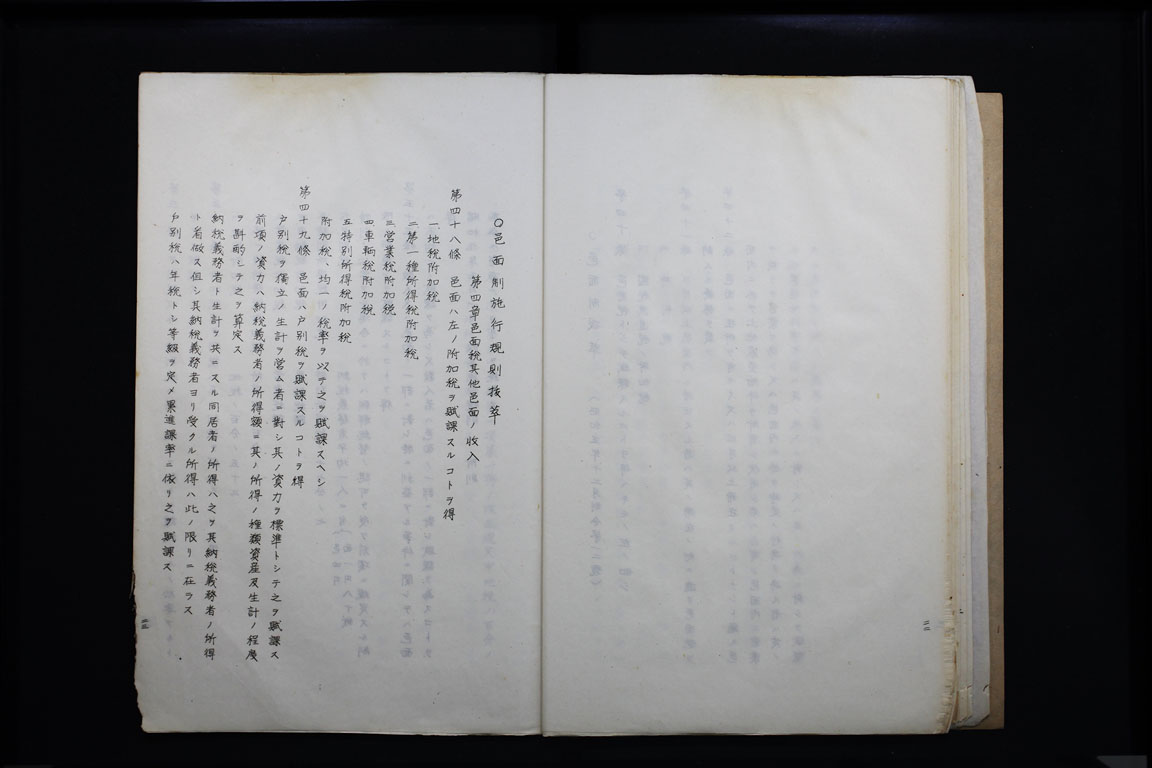 〇邑面制施行規則抜萃
第四章邑面税其他邑面ノ收入
第四十八條 邑面ハ左ノ附加税ヲ賦課スルコトヲ得
一、地税附加税
二、第一種所得税附加税
三、營業税附加税
四、車輌税附加税
五、特別所得税附加税
附加税ハ均一ノ税率ヲ以テ之ヲ賦課スヘシ
第四十九條 邑面ハ戸別税ヲ賦課スルコトヲ得
戸別税ヲ獨立ノ生計ヲ營ム者ニ對シ其ノ資力ヲ標準トシテ之ヲ賦課ス
前項ノ資力ハ納税義務者ノ所得額ニ其ノ所得ノ種類資産及生計ノ程度
ヲ斟酌シテ之ヲ算定ス
納税義務者ト生計ヲ共ニスル同居者ノ所得ハ之ヲ其納税義務者ノ所得
ト看做ス但シ其納税義務者ヨリ受クル所得ハ此ノ限リニ在ラス
戸別税ハ年税トシ等級ヲ定メ累進課率ニ依リ之ヲ賦課ス